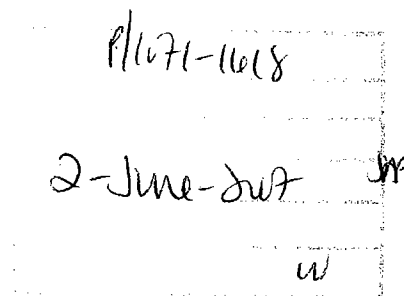 P/1671-1618
2-June-2017
W